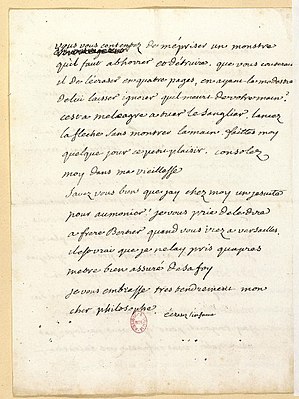 vous vous contentez de mépriser un monstre
qu'il faut abhorrer et detruire. que vous couteroit
il de l'ecraser en quatre pages, en ayant la modestie
de lui laisser ignorer qu'il meurt de votre main?
c'est a meleagre a tuer le sanglier, lancez
la fleche sans montrer la main. faittes moy
quelque jour ce petit plaisir. consolez
moy dans ma vieillesse
Savez vous bien que j'ay chez moy un jesuite
pour aumonier? je vous prie de le dire
a frere Bertier quand vous irez a versailles.
il est vrai que je ne l'ay pris qu'apres
m'etre bien assuré de sa foy
je vous embrasse tres tendrement mon
cher philosophe
écrasez l'infame